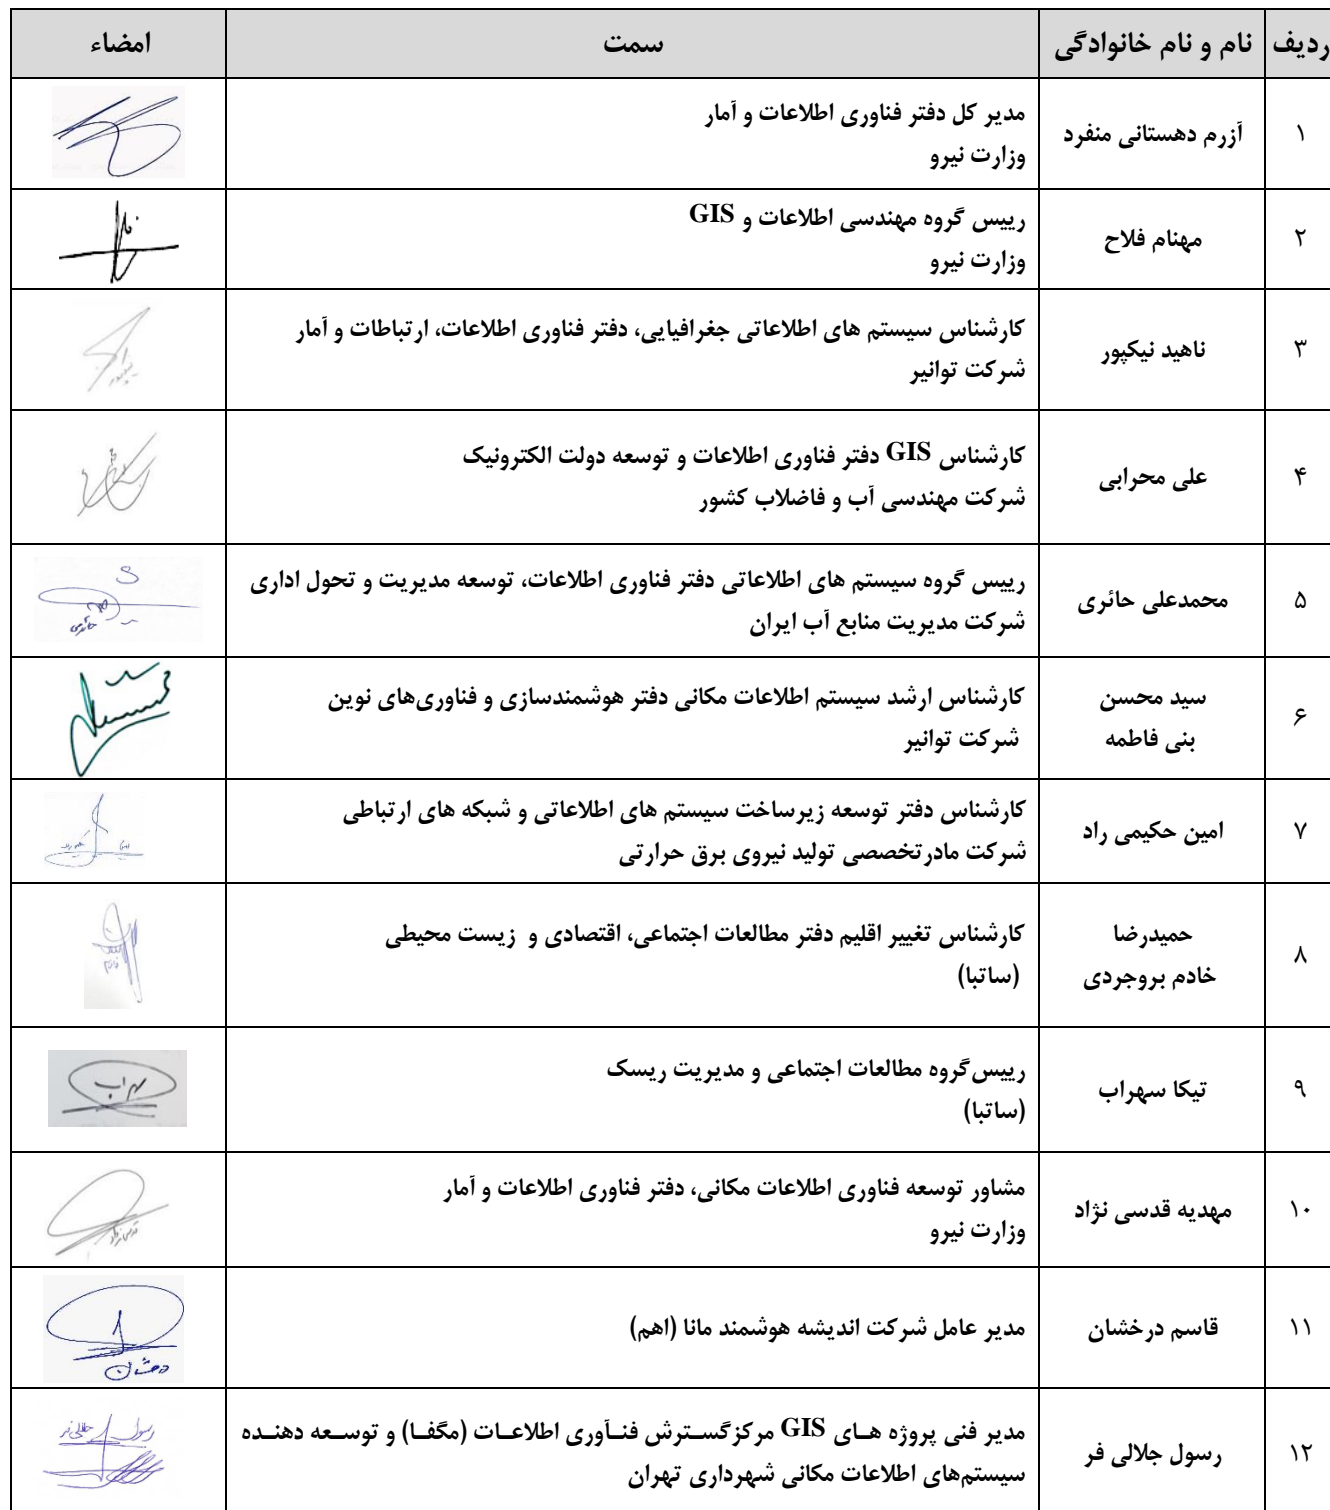 ردیف نام و نام خانوادگی سمت امضاء
۱ آزرم دهستانی منفرد مدیر کل دفتر فناوری اطلاعات و آمار
وزارت نیرو
۲ مهنام فلاح رییس گروه مهندسی اطلاعات و GIS
وزارت نیرو
۳ ناهید نیکپور کارشناس سیستم های اطلاعاتی جغرافیایی، دفتر فناوری اطلاعات، ارتباطات و آمار
شرکت توانیر
۴ علی محرابی کارشناس GIS دفتر فناوری اطلاعات و توسعه دولت الکترونیک
شرکت مهندسی آب و فاضلاب کشور
۵ محمدعلی حائری رییس گروه سیستم های اطلاعاتی دفتر فناوری اطلاعات، توسعه مدیریت و تحول اداری
شرکت مدیریت منابع آب ایران
حائری
۶ سید محسن
بنی فاطمه
کارشناس ارشد سیستم اطلاعات مکانی دفتر هوشمندسازی و فناوری‌های نوین
شرکت توانیر
۷ امین حکیمی راد کارشناس دفتر توسعه زیرساخت سیستم های اطلاعاتی و شبکه های ارتباطی
شرکت مادرتخصصی تولید نیروی برق حرارتی
۸ حمیدرضا
خادم بروجردی
کارشناس تغییر اقلیم دفتر مطالعات اجتماعی، اقتصادی و زیست محیطی
(ساتبا)
خادم
۹ تیکا سهراب رییس‌گروه مطالعات اجتماعی و مدیریت ریسک
(ساتبا)
سهراب
۱۰ مهدیه قدسی نژاد مشاور توسعه فناوری اطلاعات مکانی، دفتر فناوری اطلاعات و آمار
وزارت نیرو
قدسی نژاد
۱۱ قاسم درخشان مدیر عامل شرکت اندیشه هوشمند مانا (اهم)
درخشان
۱۲ رسول جلالی فر مدیر فنی پروژه هـای GIS مرکزگسـترش فنـآوری اطلاعـات (مگفـا) و توسـعه دهنـده
سیستم‌های اطلاعات مکانی شهرداری تهران
رسول جلالی فر